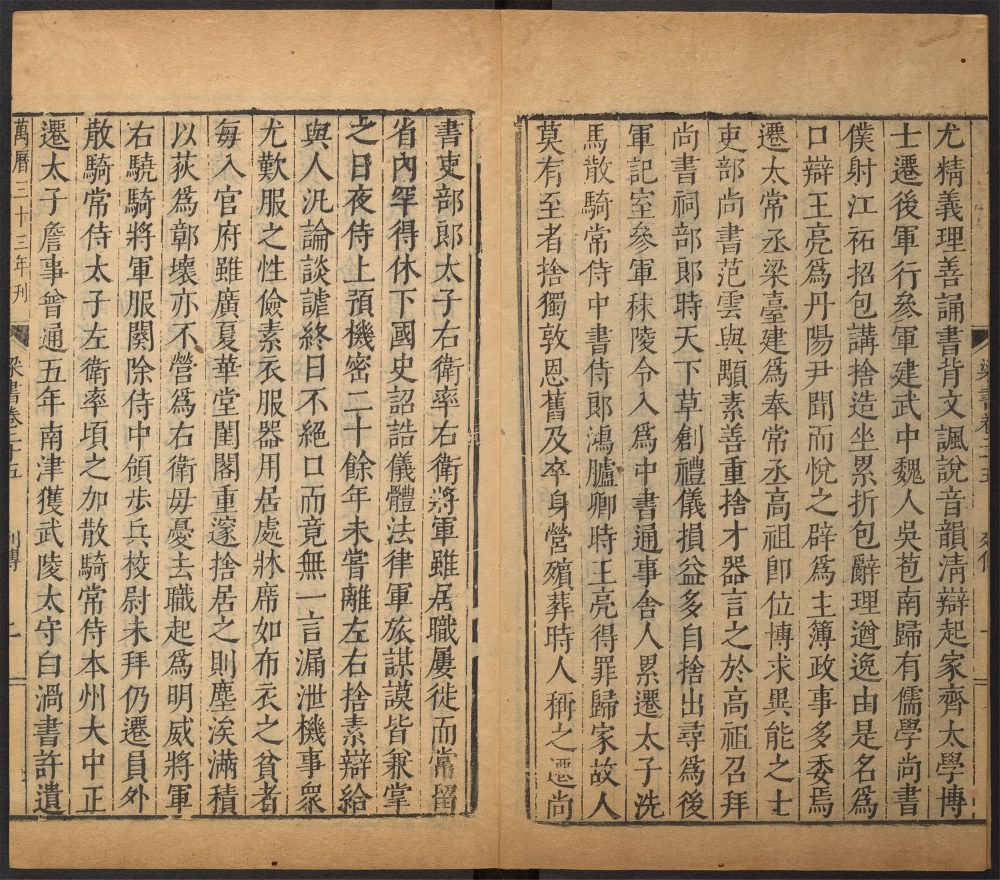 梁書卷二十五
尤精義理善誦書背文諷說音韻清辯起家齊太學博
士遷後軍行參軍建武中魏人吳苞南歸有儒學尚書
僕射江祏招包講捨造坐累折包辭理遒逸由是名爲
口辯王亮爲丹陽尹聞而悅之辟爲主簿政事多委焉
遷太常丞梁臺建爲奉常丞高祖卽位博求異能之士
吏部尚書范雲與顒素善重捨才器言之於高祖召拜
尚書祠部郎時天下草創禮儀損益多自捨出尋爲後
軍記室參軍秣陵令入爲中書通事舍人累遷太子洗
馬散騎常侍中書侍郎鴻臚卿時王亮得罪歸家故人
莫有至者捨獨敦恩舊及卒身營殯葬時人稱之遷尚
書吏部郎太子右衛率右衛將軍雖居職屢徙而常留
省內罕得休下國史詔誥儀體法律軍旅謀謨皆兼掌
之日夜侍上預機密二十餘年未嘗離左右捨素辯給
與人汎論談謔終日不絕口而竟無一言漏泄機事衆
尤歎服之性儉素衣服器用居處牀席如布衣之貧者
每入官府雖廣夏華堂閨閤重邃捨居之則塵埃滿積
以荻爲鄣壞亦不營爲右衛母憂去職起爲明威將軍
右驍騎將軍服闋除侍中領步兵校尉未拜仍遷員外
散騎常侍太子左衛率頃之加散騎常侍本州大中正
遷太子詹事普通五年南津獲武陵太守白渦書許遺
萬曆三十三年刊
梁書卷二十五
列傳